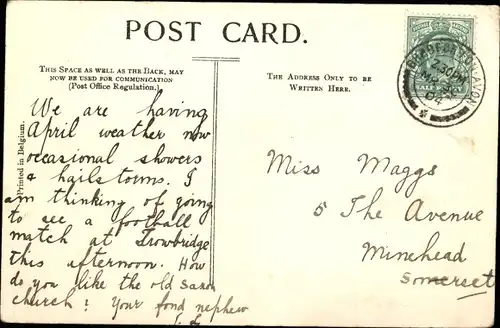 POST CARD.
THIS SPACE AS WELL AS THE BACK, MAY
NOW BE USED FOR COMMUNICATION
(Post Office Regulation.)
THE ADDRESS ONLY TO BE
WRITTEN HERE.
Printed in Belgium.
We are having
April weather now
occasional showers
& hailstorms. I
am thinking of going
to see a football
match at Trowbridge
this afternoon. How
do you like the old Saxon
church? Your fond nephew
Miss Maggs
5 The Avenue
Minehead
Somerset
BRADFORD-ON-AVON
2.30 PM
04